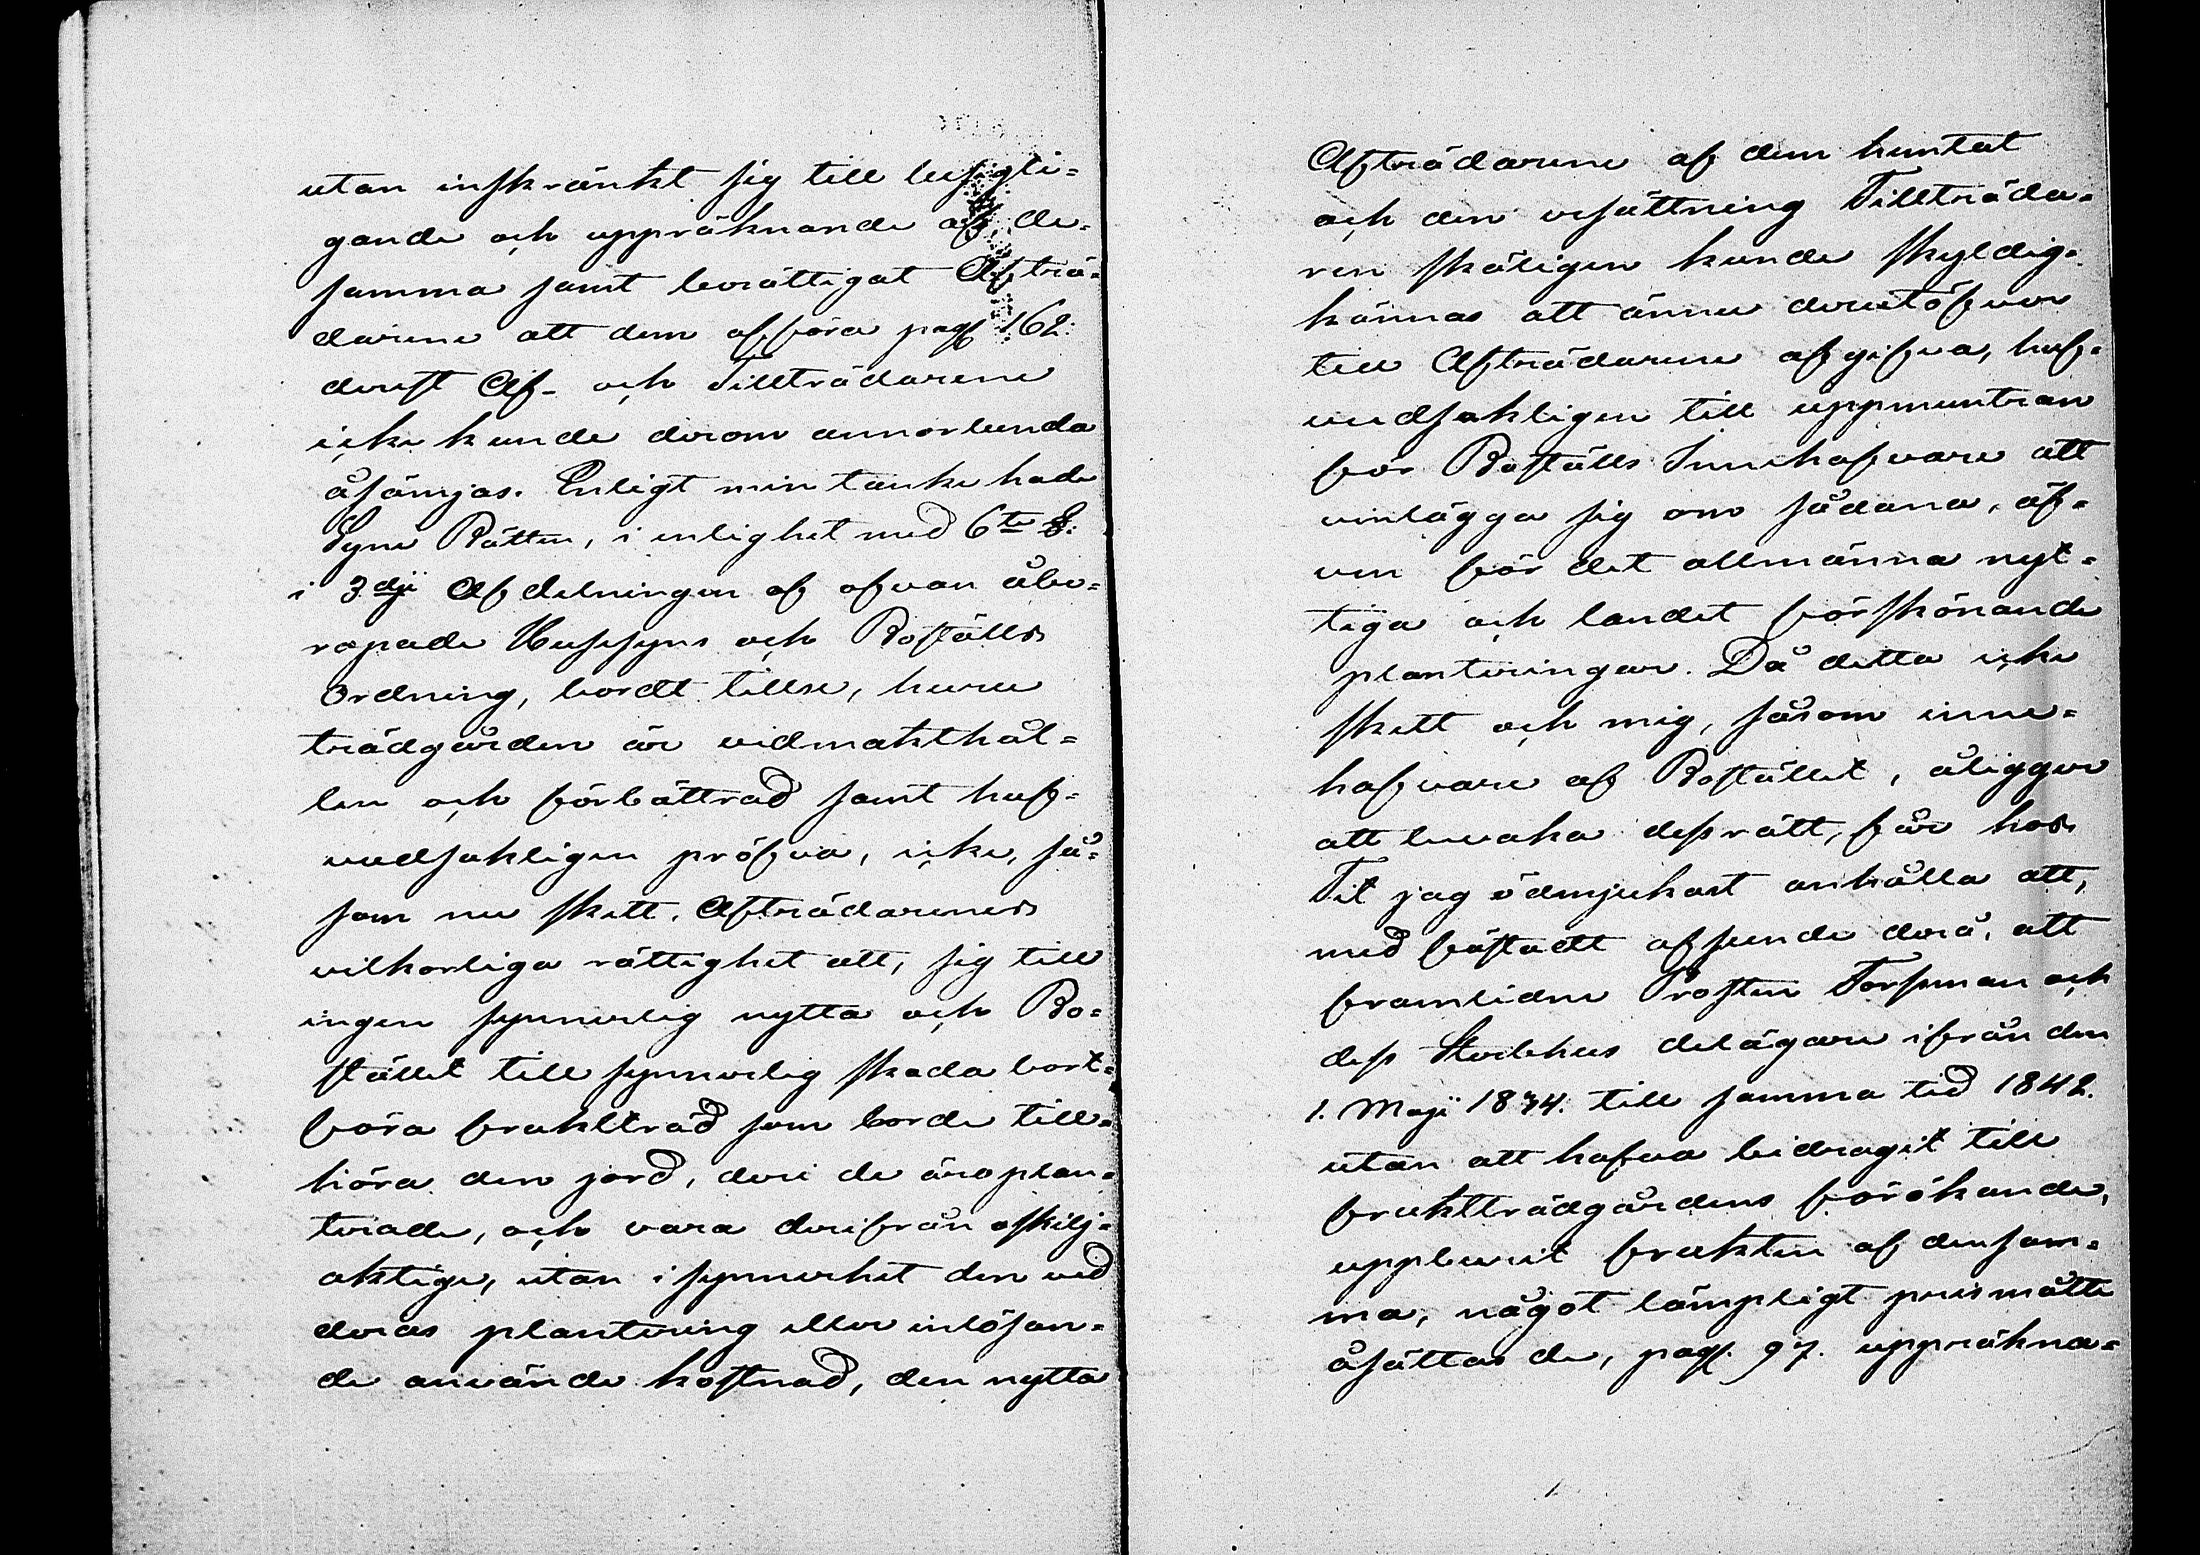 utan inskränkt sig till besigti-
gande och uppräknande af de-
samma samt berättigat Afträ-
darene att dem afföra pag 162:
derest Af- och Tillträdarene
icke kunde derom annorlunda
åsämjas. Enligt min tanke hade
Syne Rätten, i enlighet med 6te §:
i 3dje Afdelningen af ofvan åbe-
ropade Huusesyns och Boställs
Ordning, bordt tillse, huru
trädgården är vidmakthål-
len och förbättrad samt huf-
vudsakligen pröfva, icke, så-
som nu skett, Afträdarenes
vilkorliga rättighet att, sig till
ingen synnerlig nytta och Bo-
stället till synnerlig skada bort-
föra fruktträd som borde till-
höra den jord, deri de äro plan-
terade, och vara derifrån oskilj-
aktige, utan i synnerhet den vid
deras plantering eller inlösan-
de använde kostnad, den nytta
Afträdarene af dem hemtat
och den ersättning Tillträda-
ren skäligen kunde skyldig-
kännas att ännu derutöfver
till Afträdarene afgifva, huf-
vudsakligen till uppmuntran
för Boställs Innehafvare att
vinlägga sig om sådana, äf-
ven för det allmänna nyt-
tiga och landet förskönande
planteringar. Då detta icke
skett och mig, såsom inne-
hafvare af Bostället, åligger
att bevaka dess rätt, får hos
Tit jag ödmjukast anhålla att,
med fästadt afseende derå, att
framlidne Prosten Forsman och
dess Sterbhus delägare ifrån den
1. Maji 1834. till samma tid 1842.
utan att hafva bidragit till
fruktträdgårdens förökande,
uppburit frukten af densam-
ma, något lämpligt pris måtte
åsättas de, pag. 97. uppräkna-